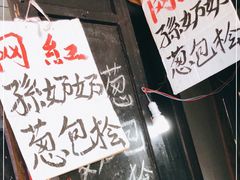 网红
孫奶奶
葱包桧
网
孫奶奶
葱包桧
葱
包
桧